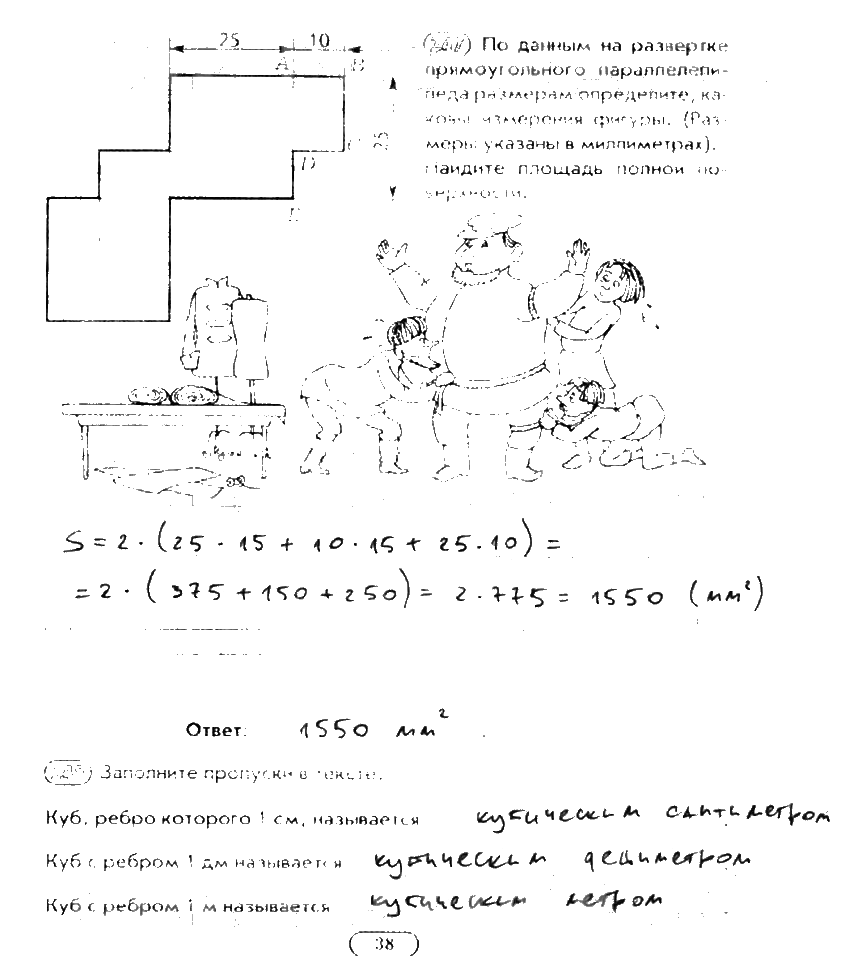 25 10
A B
По данным на развертке
прямоугольного параллелепи-
педа размерам определите, ка-
ковы измерения фигуры. (Раз-
меры указаны в миллиметрах).
Найдите площадь полной по-
верхности.
C
25
D
E
S = 2 · (25 · 15 + 10 · 15 + 25 · 10) =
= 2 · (375 + 150 + 250) = 2 · 775 = 1550 (мм²)
Ответ: 1550 мм².
Заполните пропуски в тексте.
Куб, ребро которого 1 см, называется кубическим сантиметром
Куб с ребром 1 дм называется кубическим дециметром
Куб с ребром 1 м называется кубическим метром
38